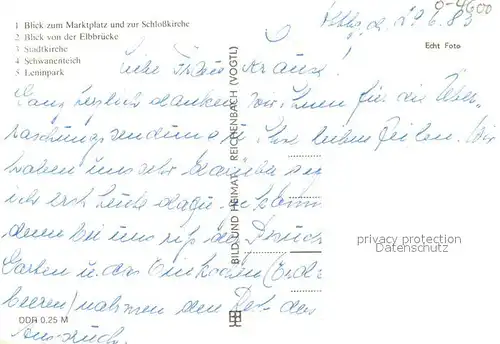 0-4600
1 Blick zum Marktplatz und zur Schloßkirche
2 Blick von der Elbbrücke
3 Stadtkirche
4 Schwanenteich
5 Leninpark
29.6.83
Echt Foto
Liebe Frau Kraus!
Ganz herzlich danken wir Ihnen für die Über-
raschungssendung u. Ihre lieben Zeilen. Wir
haben uns sehr darüber
ich erst heute dazu
denn bei uns rief der
Garten u. das Einkochen (Erd-
beeren) nahmen den Rest des
BILD UND HEIMAT REICHENBACH (VOGTL)
privacy protection
Datenschutz
DDR 0.25 M